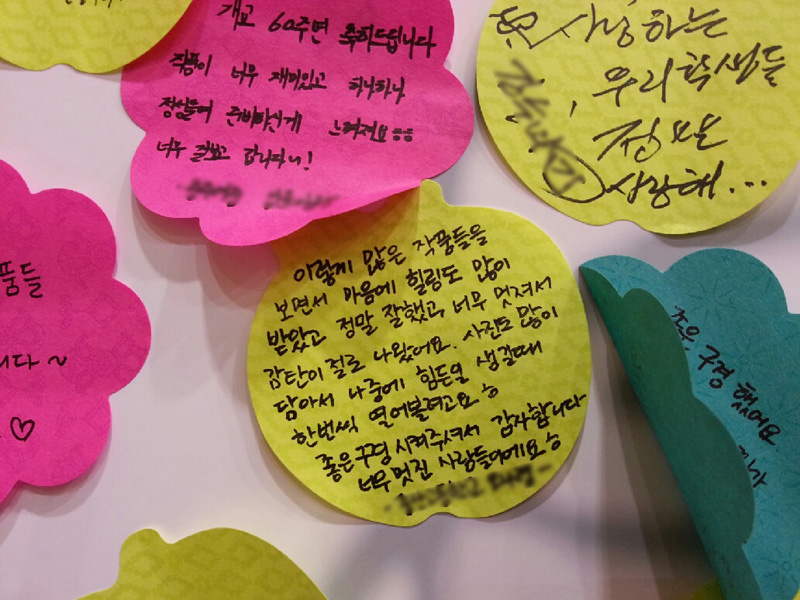 개교 60주년 축하드립니다
작품이 너무 재미있고 하나하나
정성들여 준비하신게 느껴져요ㅎㅎ
너무 잘보고 갑니다~!
사랑하는
, 우리 학생들
정말
사랑해...
품들
니다~
♡
이렇게 많은 작품들을
보면서 마음에 힐링도 많이
받았고 정말 잘했고 너무 멋져서
감탄이 절로 나왔어요. 사진도 많이
담아서 나중에 힘든일 생길때
한번씩 열어볼려고요ㅎ
좋은구경 시켜주셔서 감사합니다
너무 멋진 사람들이에요ㅎ
구경 했어요